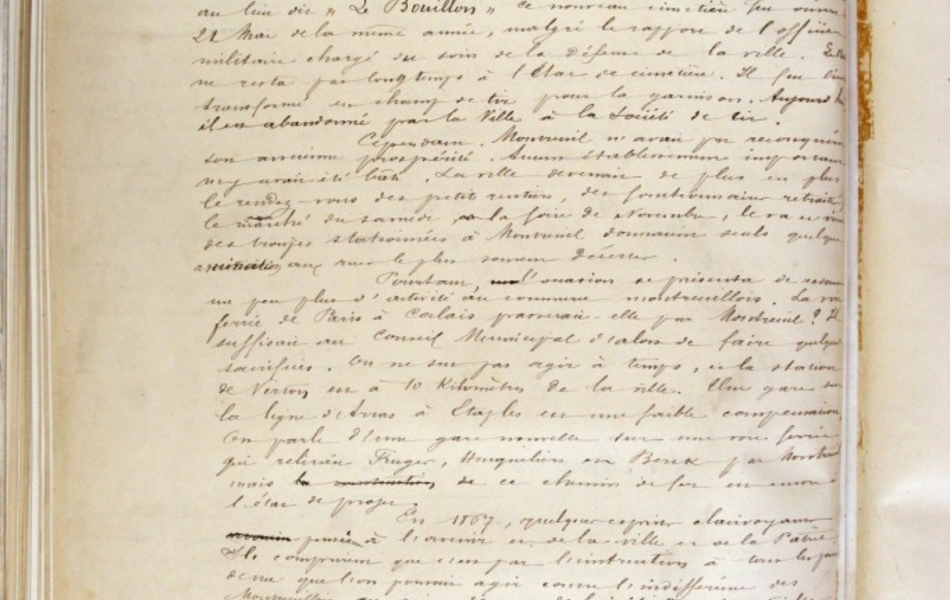 au lieu dit " Le Bouillon " ce nouveau cimetière fut ouvert
22 Mai de la même année, malgré le rapport de l'officier
militaire chargé du soin de la défense de la ville.
ne resta pas longtemps à l'état de cimetière. Il fut bien
transformé en champ de tir pour la garnison. Aujourd'hui
il est abandonné par la Ville à la Société de tir.
Cependant, Montreuil n'avait pu reconquérir
son ancienne prospérité. Aucun établissement important
n'y avait été bâti. La ville devenait de plus en plus
le rendez-vous des petits rentiers, des fonctionnaires retraités
le marché du samedi, la foire de Novembre, le va et vient
des troupes stationnées à Montreuil donnaient seuls quelque
animation aux rues le plus souvent désertes.
Pourtant, l'occasion se présenta de redonner
un peu plus d'activité au commerce montreuillois. La voie
ferrée de Paris à Calais passerait-elle par Montreuil ? Il
suffisait au Conseil Municipal d'alors de faire quelques
sacrifices. On ne sut pas agir à temps, et la station
de Verton est à 10 Kilomètres de la ville. Une gare sur
la ligne d'Arras à Etaples est une faible compensation
On parle d'une gare nouvelle sur une voie ferrée
qui relierait Fruges, Hucqueliers et Berck par Montreuil
mais de ce chemin de fer est encore à
l'état de projet.
En 1867, quelques esprits clairvoyants
à l'avenir et de la ville et de la Patrie.
Ils comprirent que c'est par l'instruction à tous les
que l'on pouvait agir contre l'indifférence des